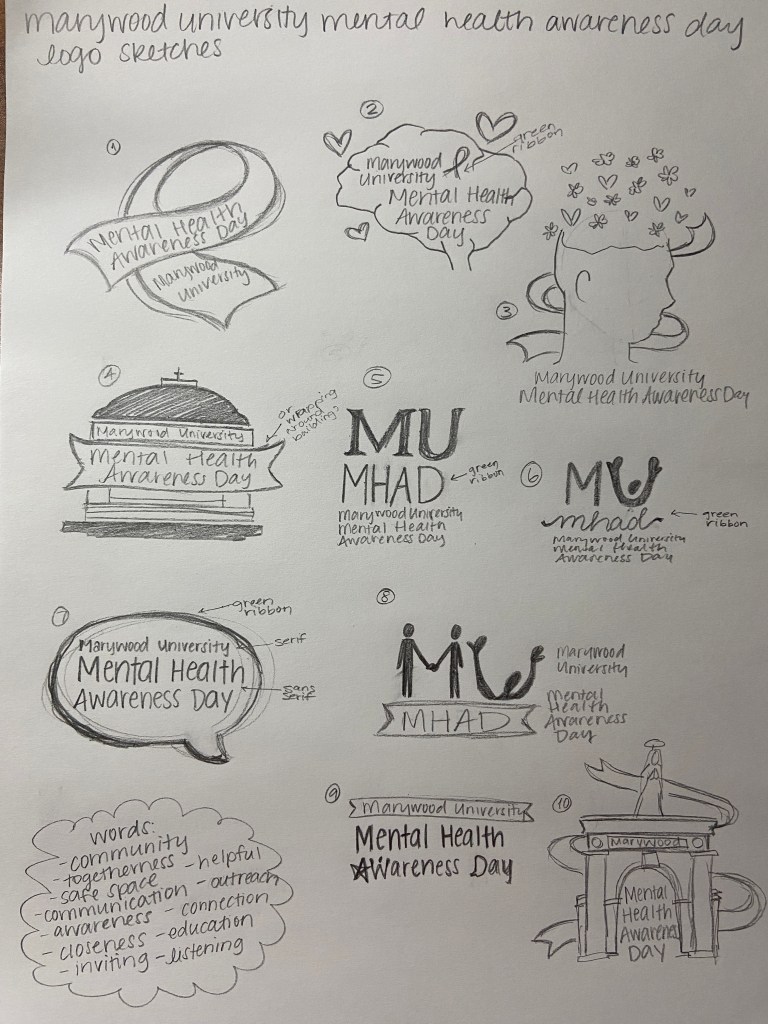 marywood university mental health awareness day
logo sketches
1
Mental Health
Awareness Day
Marywood
University
2
green
ribbon
marywood
university
Mental Health
Awareness
Day
3
Marywood University
Mental Health Awareness Day
4
or
wrapping
around
building?
Marywood University
Mental Health
Awareness Day
5
MU
MHAD
green
ribbon
Marywood University
Mental Health
Awareness Day
6
MU
mhad
green
ribbon
Marywood University
Mental Health
Awareness Day
7
green
ribbon
serif
sans
serif
Marywood University
Mental Health
Awareness Day
8
MU
MHAD
Marywood
University
Mental
Health
Awareness
Day
words:
- community
- togetherness - helpful
- safe space
- communication - outreach
- awareness - connection
- closeness - education
- inviting - listening
9
Marywood University
Mental Health
Awareness Day
10
Marywood
Mental
Health
Awareness
Day